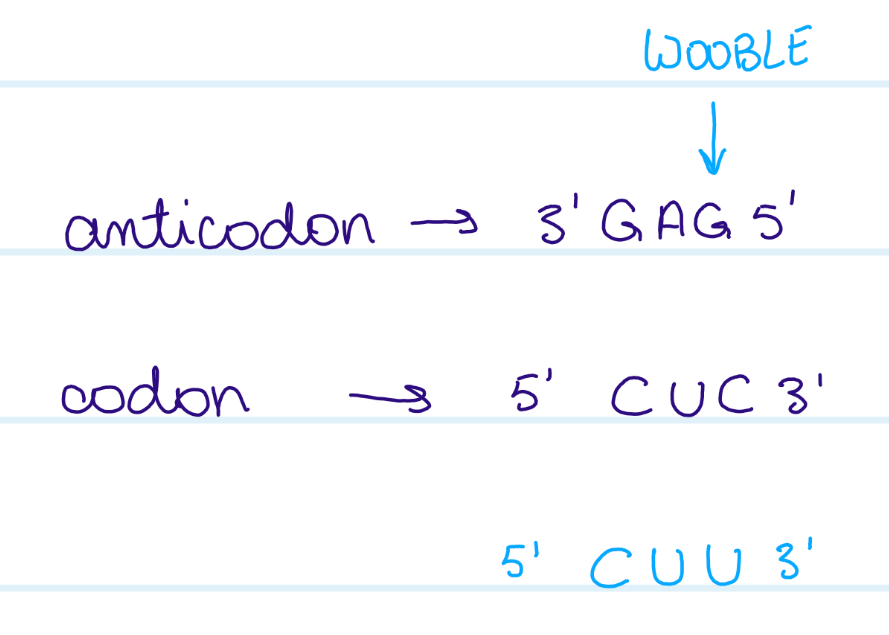 WOOBLE
anticodon → 3' GAG 5'
codon → 5' CUC 3'
5' CUU 3'